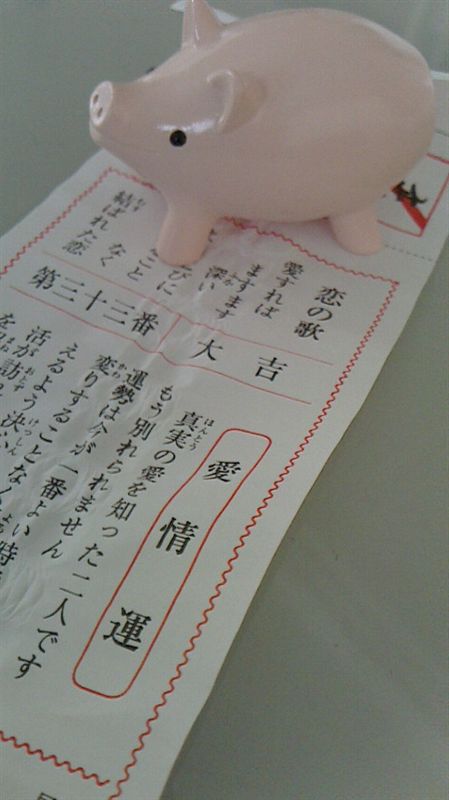 恋の歌
愛すれば
ますます
深い
びに
こと
なく
結ばれた恋
大吉
第三十三番
愛情運
真実の愛を知った二人です
もう別れられません
運勢は今が一番よい時
変りすることなく
えるよう決心
活が訪
を